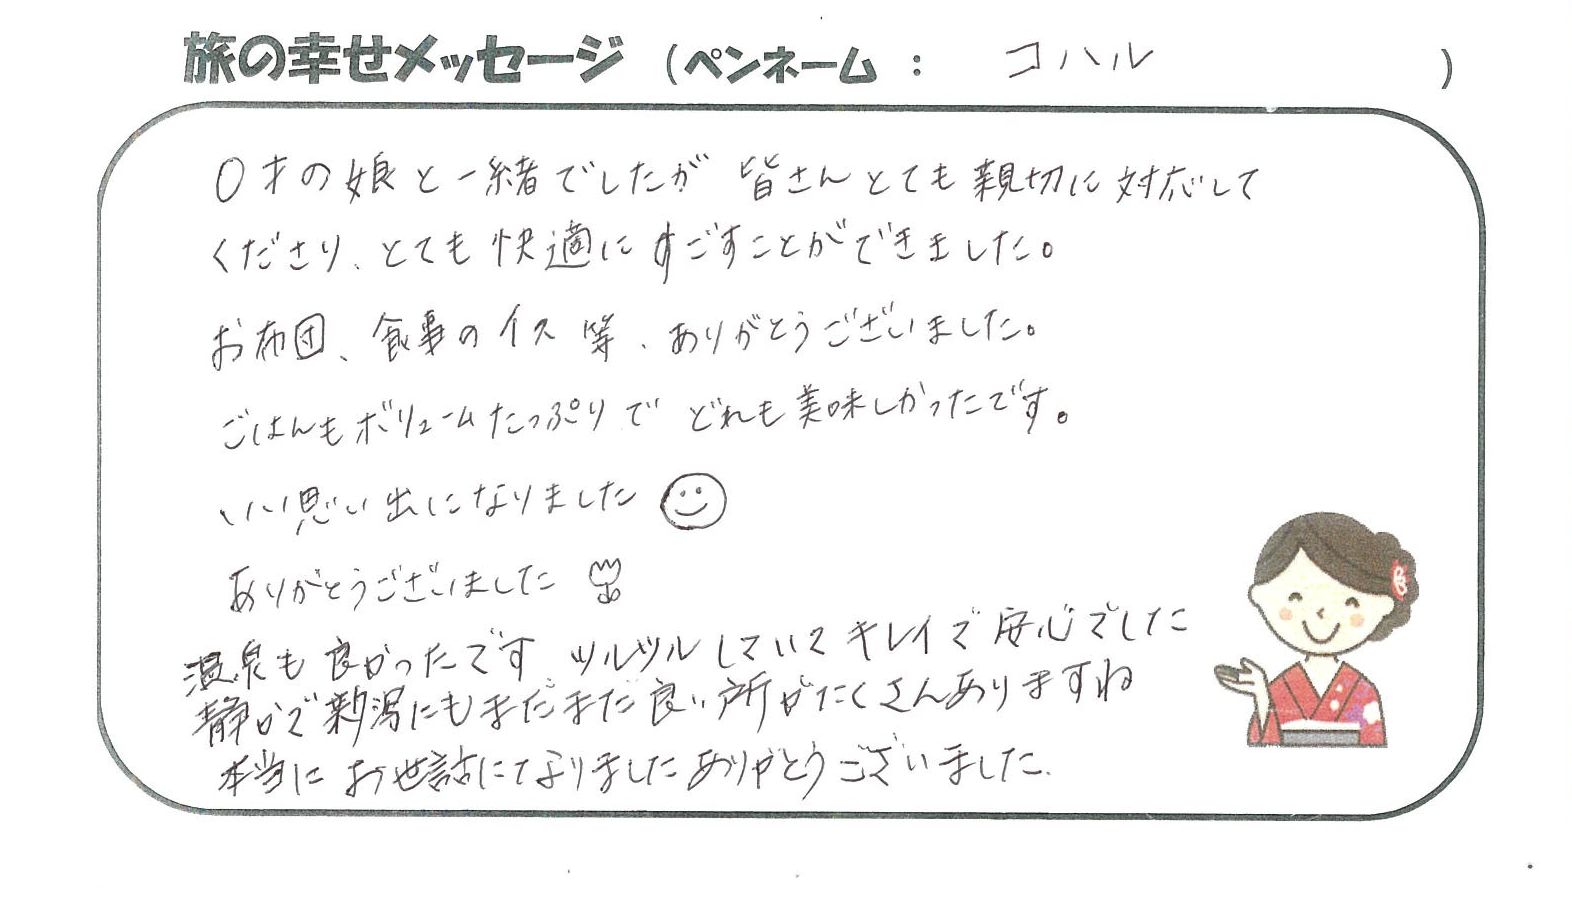 旅の幸せメッセージ (ペンネーム : コハル )
0才の娘と一緒でしたが 皆さんとても親切に対応して
くださり、とても快適にすごすことができました。
お布団、食事のイス等、ありがとうございました。
ごはんもボリュームたっぷりで どれも美味しかったです。
いい思い出になりました
ありがとうございました
温泉も良かったです ツルツルしていてキレイで安心でした
静かで新潟にもまだまだ良い所がたくさんありますね
本当にお世話になりましたありがとうございました.